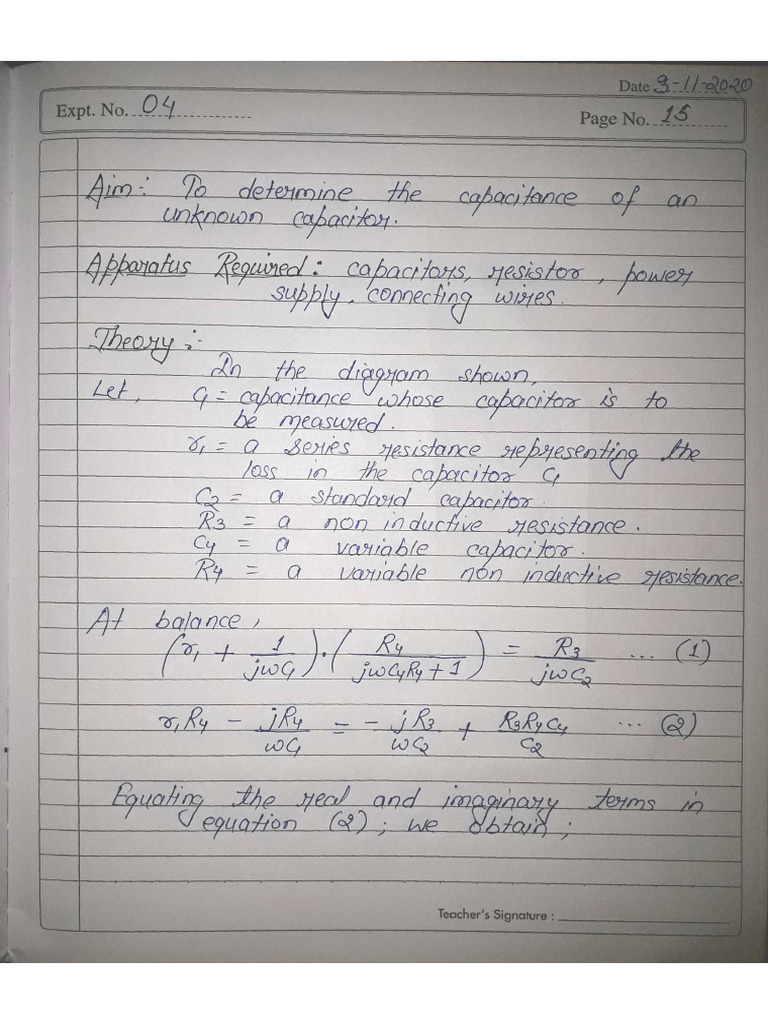 Date 3-11-2020
Expt. No. 04
Page No. 15
Aim:- To determine the capacitance of an
unknown capacitor.
Apparatus Required: capacitors, resistor, power
supply, connecting wires.
Theory:-
In the diagram shown,
Let, C1 = capacitance whose capacitor is to
be measured.
r1 = a series resistance representing the
loss in the capacitor C1
C2 = a standard capacitor.
R3 = a non inductive resistance.
C4 = a variable capacitor.
R4 = a variable non inductive resistance.
At balance,
(r1 + 1/jωC1).(R4/jωC4R4+1) = R3/jωC2 ... (1)
r1R4 - jR4/ωC1 = - jR3/ωC2 + R3R4C4/C2 ... (2)
Equating the real and imaginary terms in
equation (2); we obtain;
Teacher's Signature :